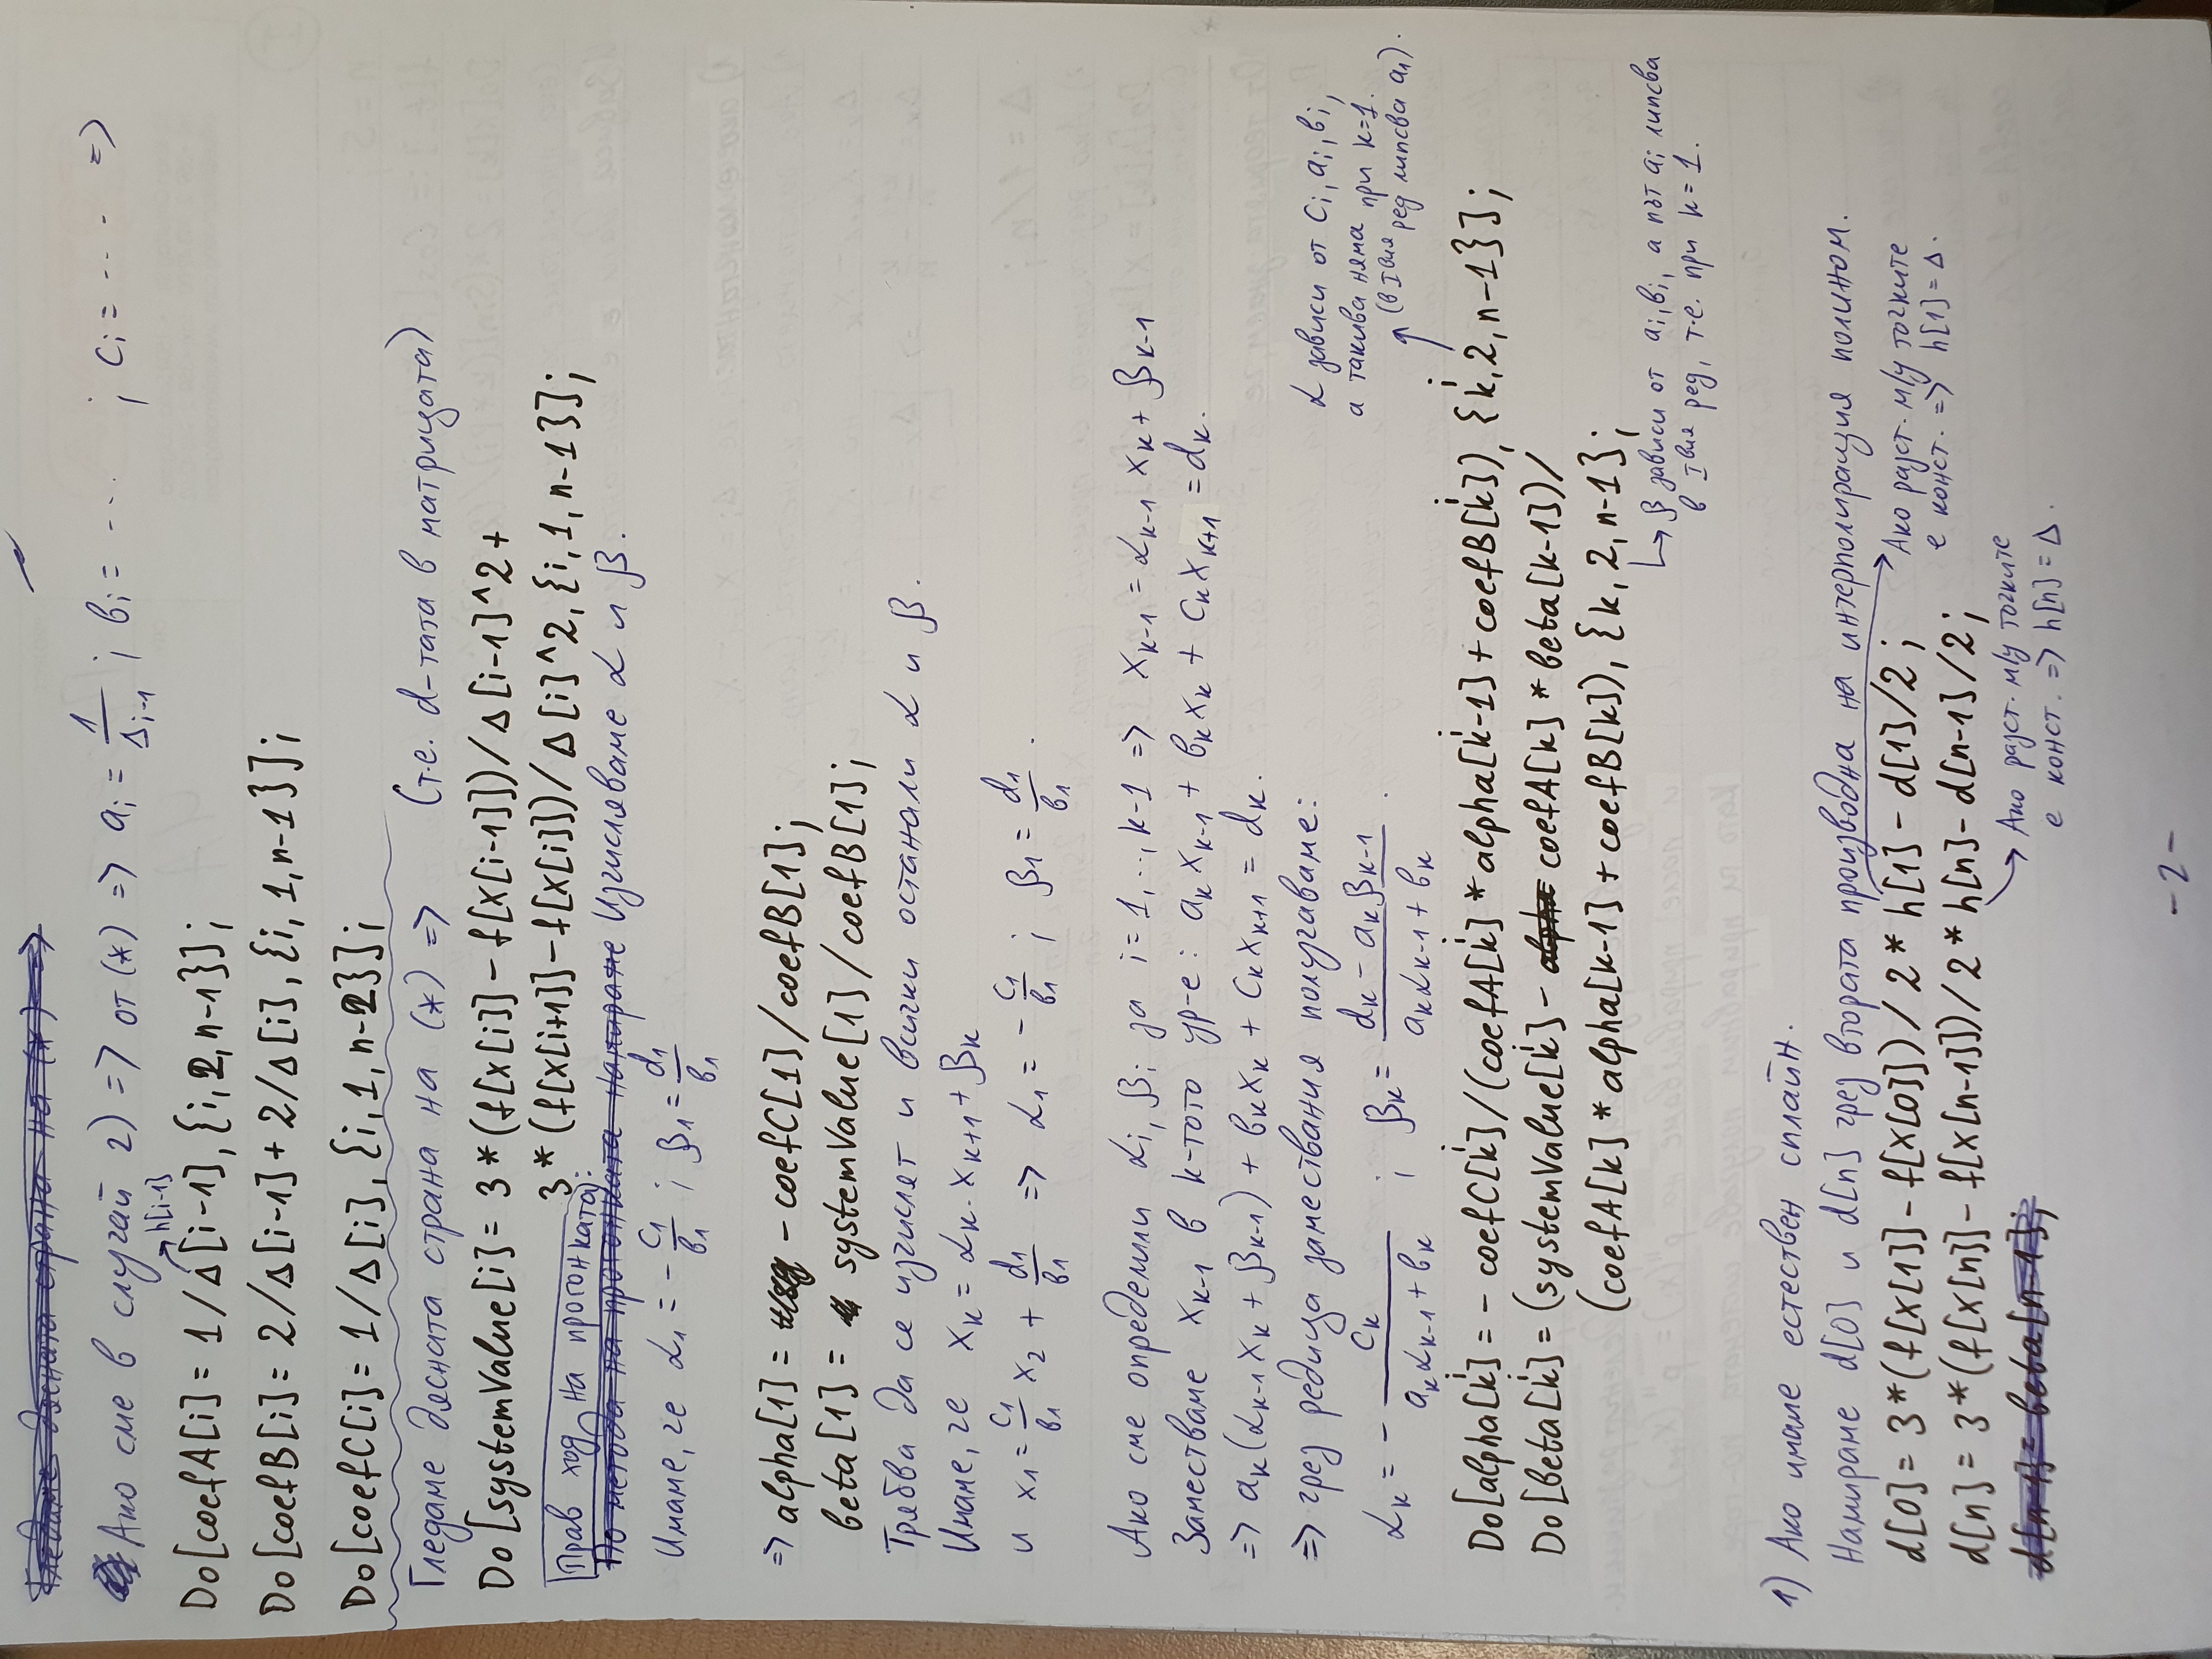 Гледаме дясната страна на (*) =>
Ако сме в случай 2) => от (*) => aᵢ = 1/Δᵢ₋₁ ; вᵢ = ... ; cᵢ = .... =>
h[i-1]
Do[coefA[i] = 1/Δ[i-1], {i, 2, n-1}];
Do[coefB[i] = 2/Δ[i-1] + 2/Δ[i], {i, 1, n-1}];
Do[coefC[i] = 1/Δ[i], {i, 1, n-2}];
Гледаме дясната страна на (*) => (т.е. d-тата в матрицата)
Do[systemValue[i] = 3*(f[x[i]] - f[x[i-1]])/Δ[i-1]^2 +
3*(f[x[i+1]] - f[x[i]])/Δ[i]^2, {i, 1, n-1}];
Прав ход на прогонката:
По метода на прогонката намираме Изчисляваме α и β.
Имаме, че α₁ = - c₁/в₁ ; β₁ = d₁/в₁
=> alpha[1] = - coefC[1]/coefB[1];
beta[1] = systemValue[1]/coefB[1];
Трябва да се изчислят и всички останали α и β.
Имаме, че xₖ = αₖ. xₖ₊₁ + βₖ
и x₁ = c₁/в₁ x₂ + d₁/в₁ => α₁ = - c₁/в₁ ; β₁ = d₁/в₁ .
Ако сме определили αᵢ, βᵢ за i = 1, .., k-1 => xₖ₋₁ = αₖ₋₁ xₖ + βₖ₋₁
Заместваме xₖ₋₁ в k-тото ур-е: aₖ xₖ₋₁ + вₖ xₖ + cₖ xₖ₊₁ = dₖ.
=> aₖ(αₖ₋₁ xₖ + βₖ₋₁) + вₖ xₖ + cₖ xₖ₊₁ = dₖ.
=> чрез редица замествания получаваме:
αₖ = - cₖ/(aₖ αₖ₋₁ + вₖ) ; βₖ = (dₖ - aₖ βₖ₋₁)/(aₖ αₖ₋₁ + вₖ) .
α зависи от cᵢ, aᵢ, вᵢ,
а такива няма при k=1.
(в Iвия ред липсва a₁).
i i i i i i
Do[alpha[k] = - coefC[k]/(coefA[k] * alpha[k-1] + coefB[k]), {k, 2, n-1}];
i i
Do[beta[k] = (systemValue[k] - alpha coefA[k] * beta[k-1])/
(coefA[k] * alpha[k-1] + coefB[k]), {k, 2, n-1};
β зависи от aᵢ, вᵢ, а път aᵢ липсва
в Iвия ред, т.е. при k = 1.
1) Ако имаме естествен сплайн.
Намираме d[0] и d[n] чрез втората производна на интерполиращия полином.
d[0] = 3*(f[x[1]] - f[x[0]])/2 * h[1] - d[1]/2;
Ако разст. м/у точките
е конст. => h[1] = Δ.
d[n] = 3*(f[x[n]] - f[x[n-1]])/2 * h[n] - d[n-1]/2;
d[n-1] = beta[n-1];
Ако разст. м/у точките
е конст. => h[n] = Δ.
-2-